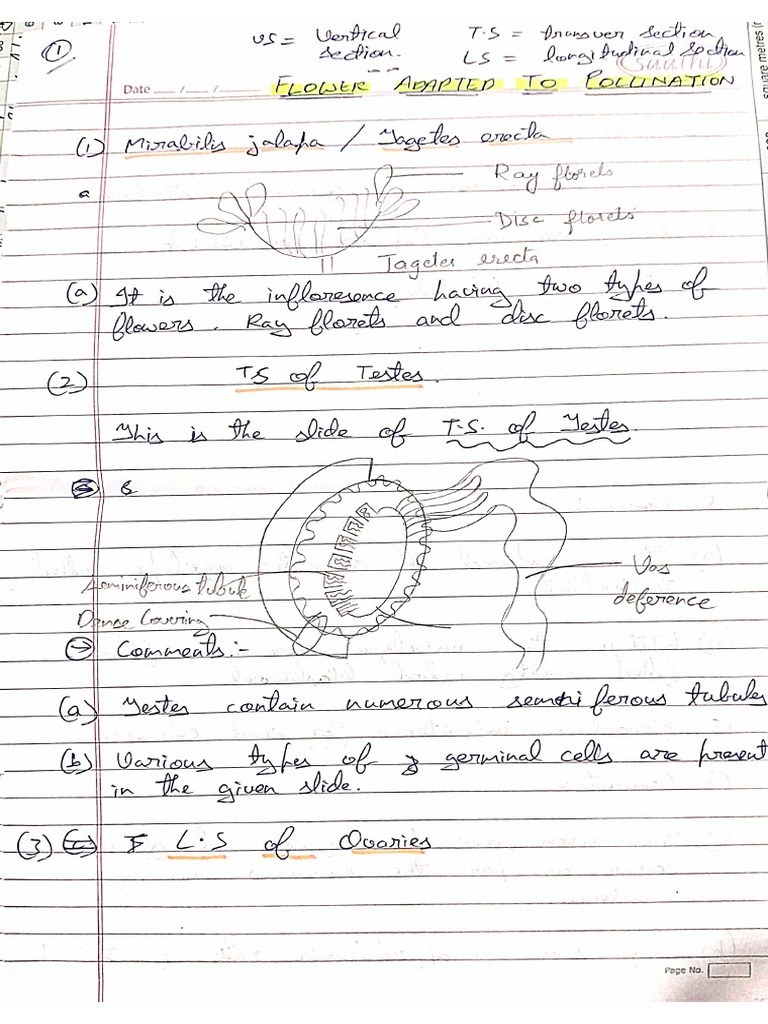 (1)
VS = Vertical section.
T.S = transver section
LS = longitudinal section
(Saakhi)
Date __/__/__
FLOWER ADAPTED TO POLLINATION
(1) Mirabilis jalapa / Tagetes erecta
a
Ray florets
Disc florets
Tagetes erecta
(a) It is the infloresence having two types of
flowers. Ray florets and disc florets.
(2) TS of Testes.
This is the slide of T.S. of Testes.
Seminiferous tubule
Vas
deference
Dense Covering
→ Comments:-
(a) Testes contain numerous seminiferous tubules
(b) Various types of germinal cells are present
in the given slide.
(3) L.S of Ovaries
Page No.
square metres